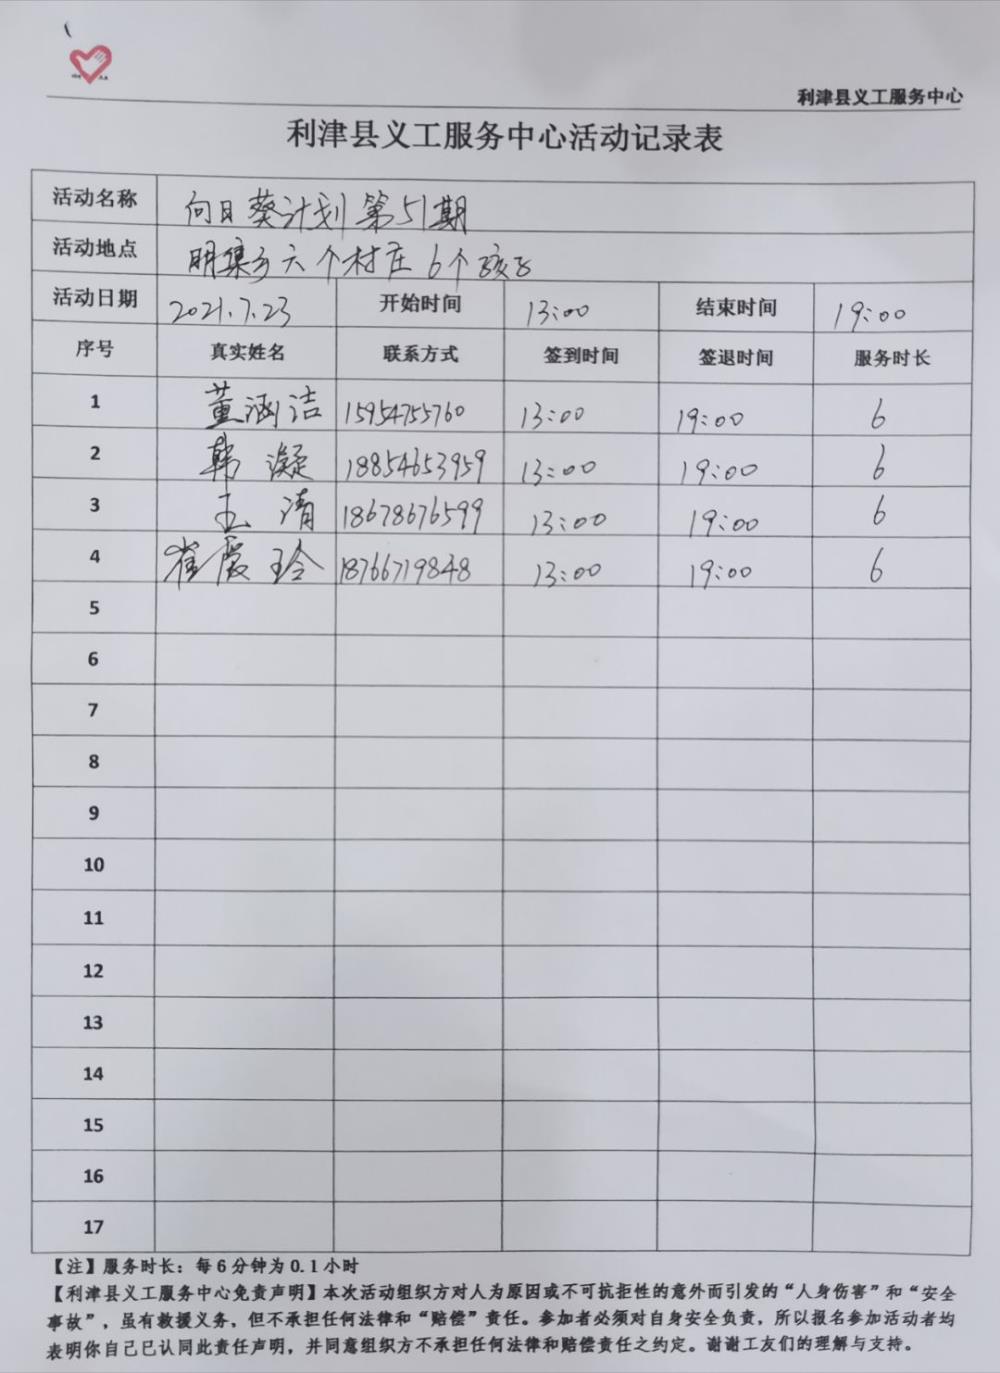 利津县义工服务中心
利津县义工服务中心活动记录表
活动名称 向日葵计划第51期
活动地点 明集乡六个村庄6个孩子
活动日期 2021.7.23 开始时间 13:00 结束时间 19:00
序号 真实姓名 联系方式 签到时间 签退时间 服务时长
1 董涵洁 15954755760 13:00 19:00 6
2 韩凝 18854653959 13:00 19:00 6
3 王清 18678676599 13:00 19:00 6
4 崔爱玲 18766719848 13:00 19:00 6
5
6
7
8
9
10
11
12
13
14
15
16
17
【注】服务时长：每6分钟为0.1小时
【利津县义工服务中心免责声明】本次活动组织方对人为原因或不可抗拒性的意外而引发的“人身伤害”和“安全
事故”，虽有救援义务，但不承担任何法律和“赔偿”责任。参加者必须对自身安全负责，所以报名参加活动者均
表明你自己已认同此责任声明，并同意组织方不承担任何法律和赔偿责任之约定。谢谢工友们的理解与支持。